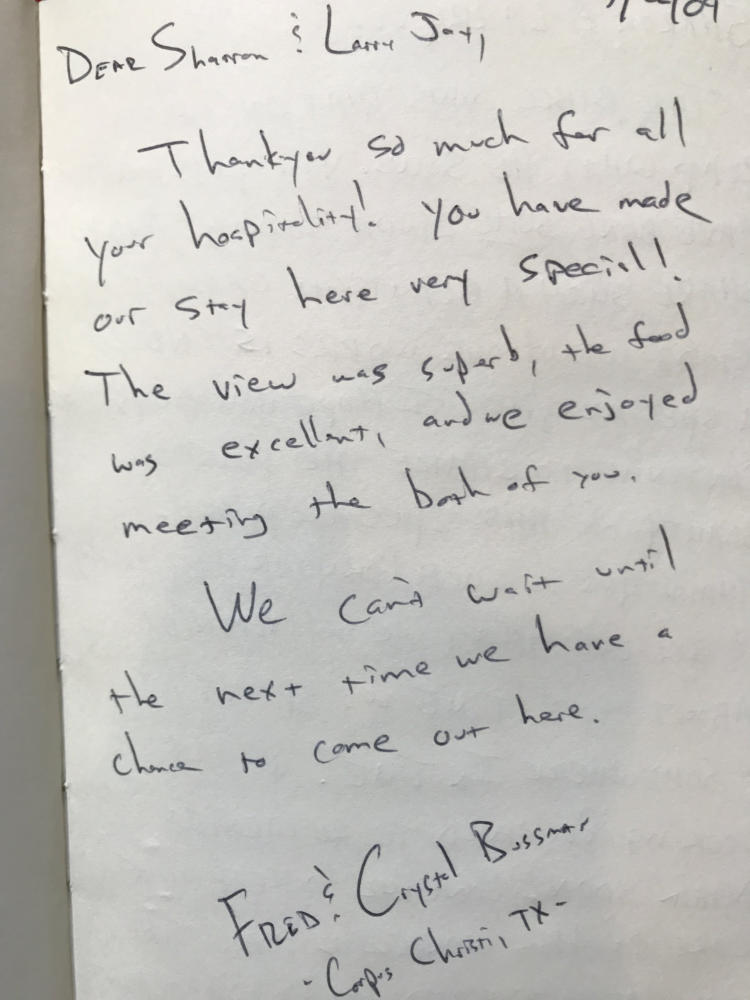 DEAR Sharron & Larry Joy,
Thankyou so much for all
your hospitality! you have made
our stay here very special!
The view was superb, the food
was excellent, and we enjoyed
meeting the both of you.
We can't wait until
the next time we have a
chance to come out here.
FRED & Crystal Bussman
- Corpus Christi, TX -